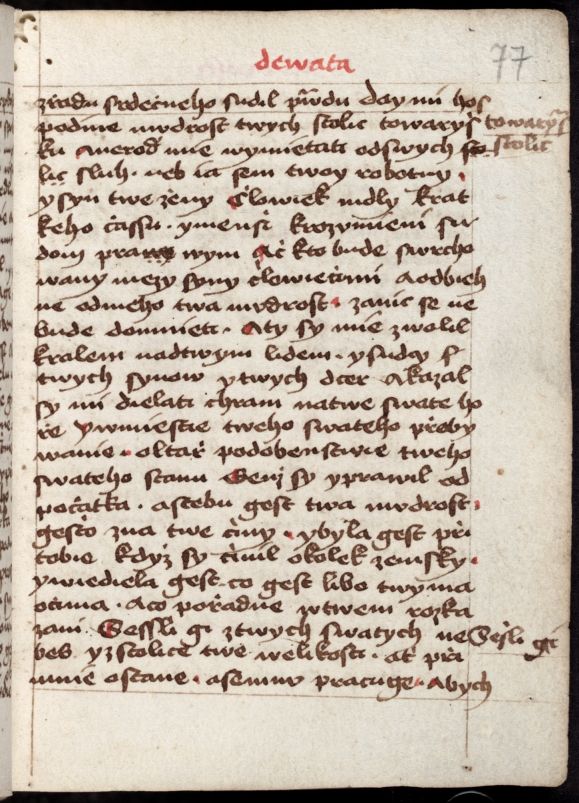 dewata
77
zřiadu srdečneho sudil pr̃wdu Day mi hos
podine mudrost twych stolic towarys̃
towarys̃
ku Anerod̕ mie wymietati odswych sto
stolic
lic sluh · neb ia sem twoy robotny ·
ysyn twe żeny Człowiek mdly krat
keho čassu · ymensi krozymieni su
dom prawym Ač kto bude swrcho
wany mezy syny człowieċimi Aodbieh
ne odnieho twa mudrost · zanic se ne
bude domnieti · Aty sy mie zwolil
kralem nadtwym lidem · ysudcy s
twych synow ytwych dcer Akazal
sy mi dielati chram natwe swate ho
rze Ywmiestie tweho swateho przieby
wanie · oltař podobenstwie tweho
swateho stanu Genz sy yprawil od
počatka · astebu gest twa mudrost ·
gesto zna twe činy · ybyla gest při
tobie kdyż sy činil okolek zemsky ·
ywiediela gest · co gest libo twyma
očima · Aco pořadne wtwem rozka
zani Sessli gi ztwych swatych ne
Sešli gi
bes yzstolice twe welikosti · at při
mnie ostane · asemnu pracuge · Abych